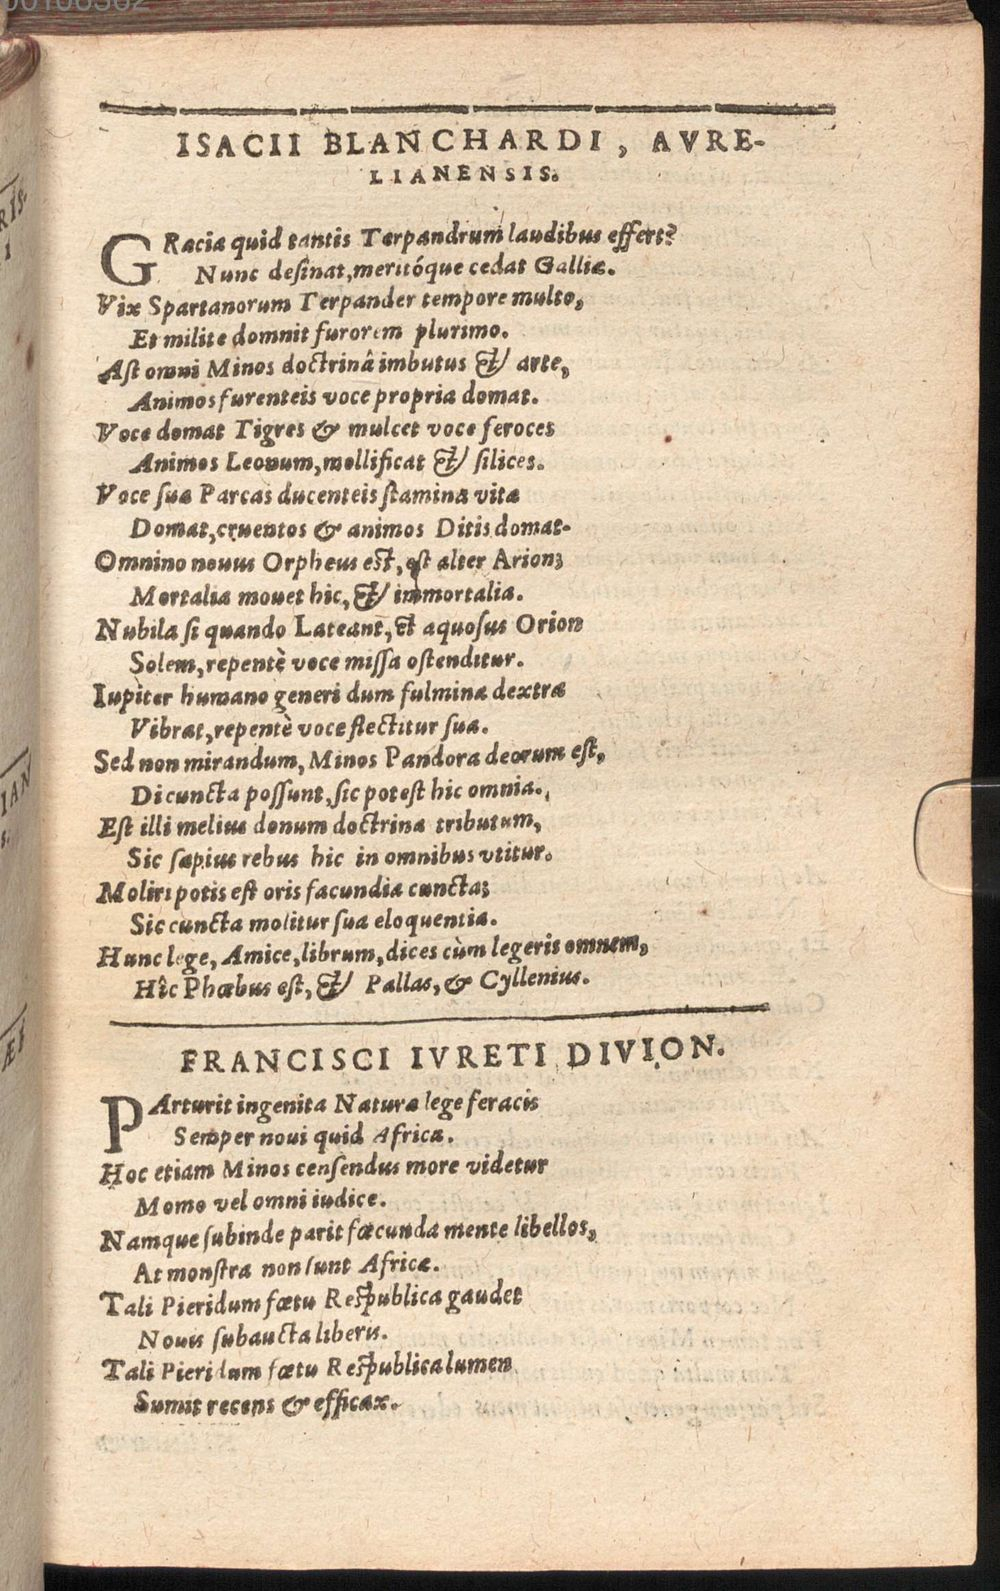 00106362
ISACII BLANCHARDI, AVRE-
LIANENSIS.
GRacia quid tantis Terpandrum laudibus effert?
Nunc desinat, meritóque cedat Galliæ.
Vix Spartanorum Terpander tempore multo,
Et milite domnit furorem plurimo.
Ast omni Minos doctrinâ imbutus & arte,
Animos furenteis voce propria domat.
Voce domat Tigres & mulcet voce feroces
Animos Leonum, mollificat & silices.
Voce sua Parcas ducenteis stamina vitæ
Domat, cruentos & animos Ditis domat.
Omnino nouus Orpheus est, est alter Arion;
Mortalia mouet hic, & immortalia.
Nubila si quando Lateant, & aquosus Orion
Solem, repentè voce missa ostenditur.
Iupiter humano generi dum fulmina dextra
Vibrat, repentè voce flectitur sua.
Sed non mirandum, Minos Pandora deorum est,
Di cuncta possunt, sic potest hic omnia.
Est illi melius donum doctrina tributum,
Sic sæpius rebus hic in omnibus vtitur.
Moliri potis est oris facundia cuncta;
Sic cuncta molitur sua eloquentia.
Hunc lege, Amice, librum, dices cùm legeris omnem,
Hîc Phœbus est, & Pallas, & Cyllenius.
FRANCISCI IVRETI DIVION.
PArturit ingenita Naturæ lege feracis
Semper noui quid Africa.
Hoc etiam Minos censendus more videtur
Momo vel omni iudice.
Namque subinde parit fœcunda mente libellos,
At monstra non sunt Africæ.
Tali Pieridum fœtu Respublica gaudet
Nouis subaucta liberis.
Tali Pieridum fœtu Respublica lumen
Sumit recens & efficax.